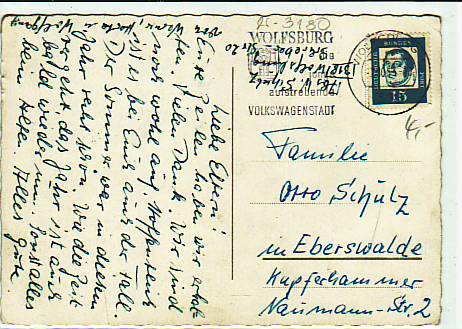 Liebe Eltern!
Eure Zeilen haben wir erhal-
ten. Vielen Dank. Wir sind
noch wohl auf. Hoffentlich
ist es bei Euch auch der Fall.
Der Sommer war in diesem
Jahr sehr schön. Wie die Zeit
vergeht das Jahr ist auch
bald wieder um. Sonst alles
beim Alten. Alles
Gute
WOLFSBURG
die
aufstrebende
VOLKSWAGENSTADT
DEUTSCHE BUNDESPOST
15
Familie
Otto Schulz
in Eberswalde
Kupferhammer
Naumann-Str. 2